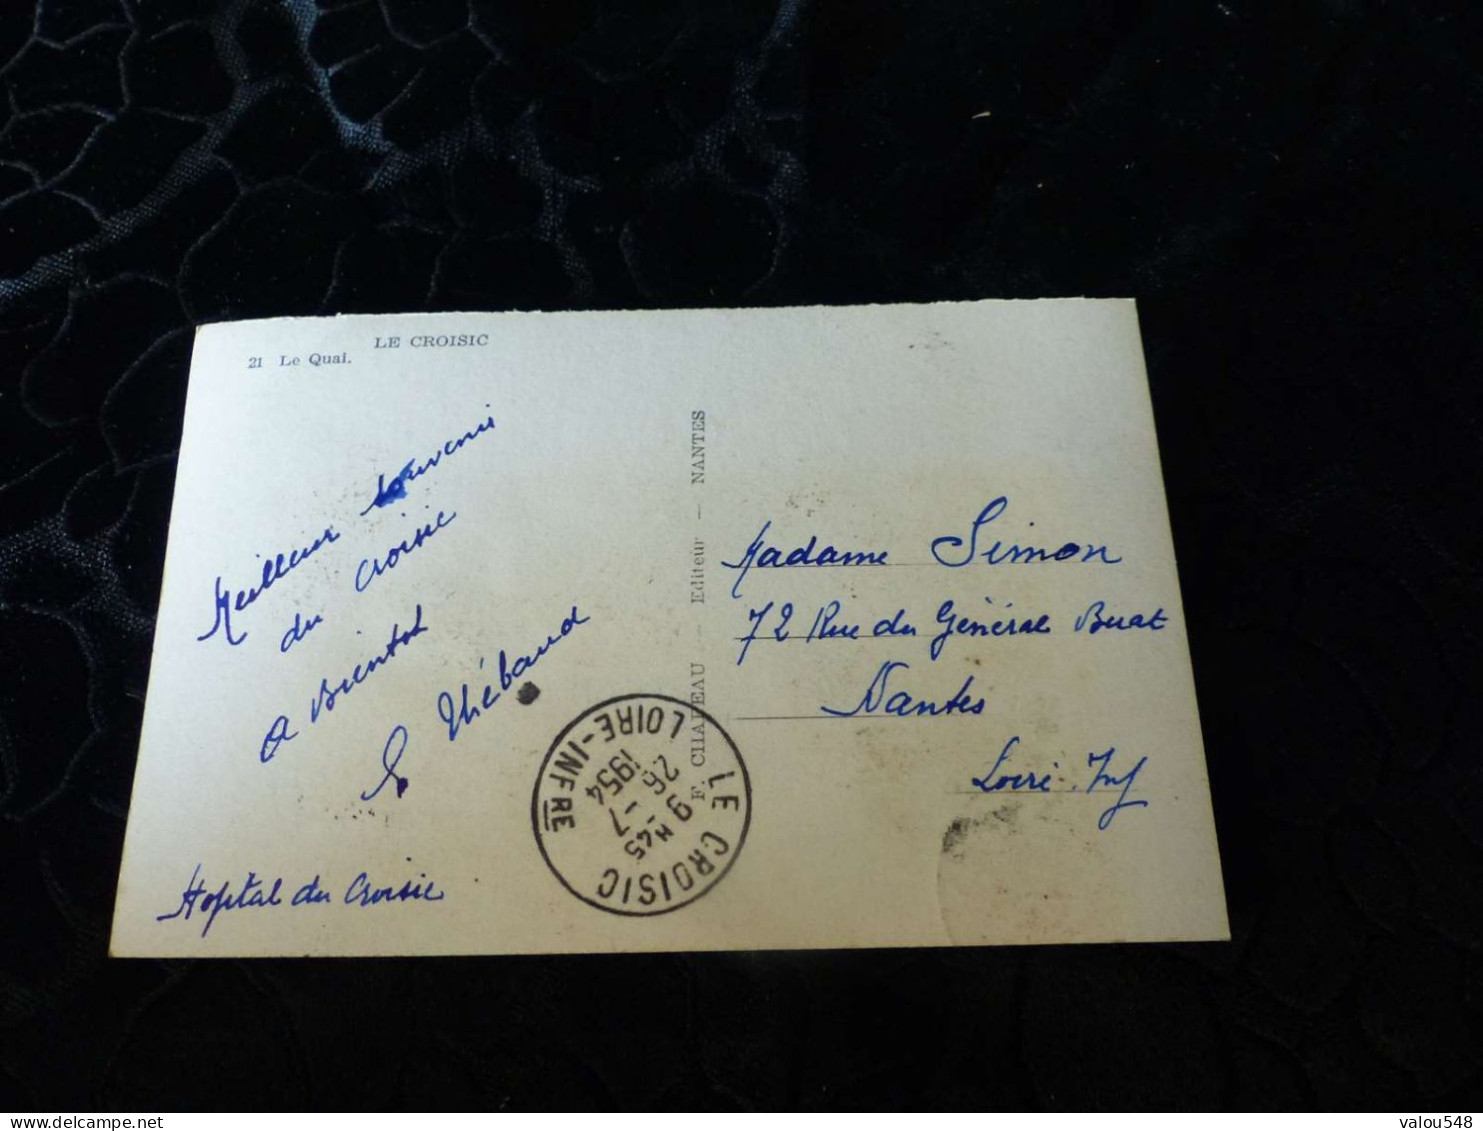 LE CROISIC
21 Le Quai.
Meilleur souvenir
du Croisic
a Bientot
E Thébaud
Hopital du Croisic
F. CHAPEAU — Editeur — NANTES
LE CROISIC
LOIRE-INFRE
9H45
26 - 7
1954
Madame Simon
72 Rue du Général Buat
Nantes
Loire Inf
valou548